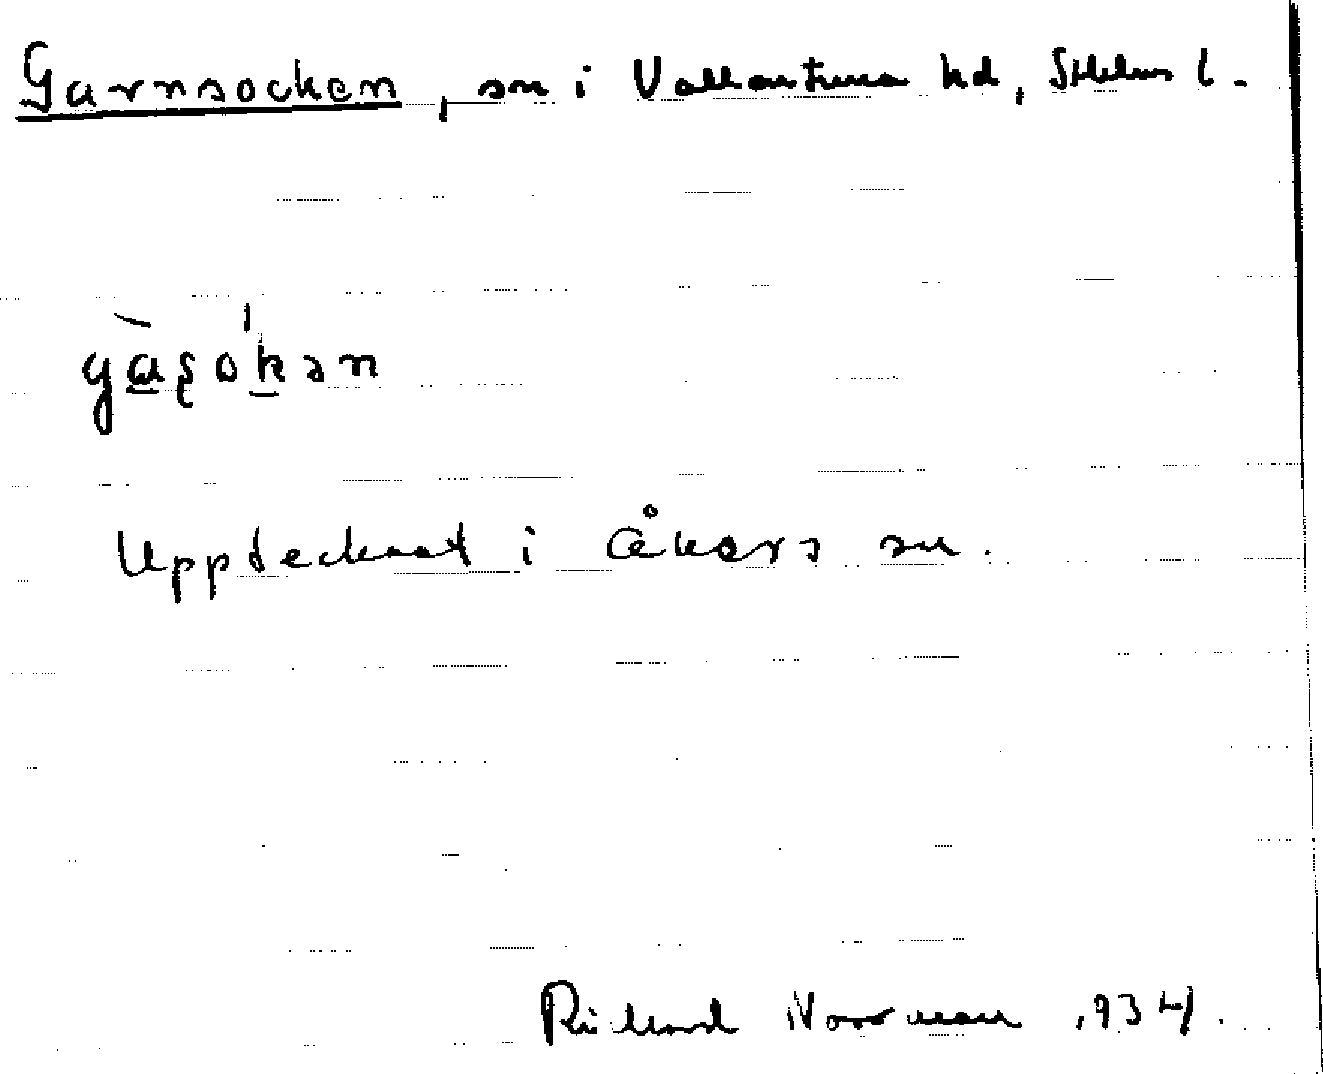 Garnsocken, sn i Vallentuna hd, Sthlms l.
gàṣókən
Upptecknat i Åkers sn.
Rickard Norrman 1934.